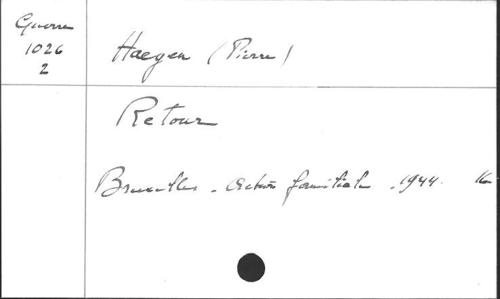 Guerre
1026
2
Haegen (Pierre)
Retour
Bruxelles - Action familiale - 1944. 16